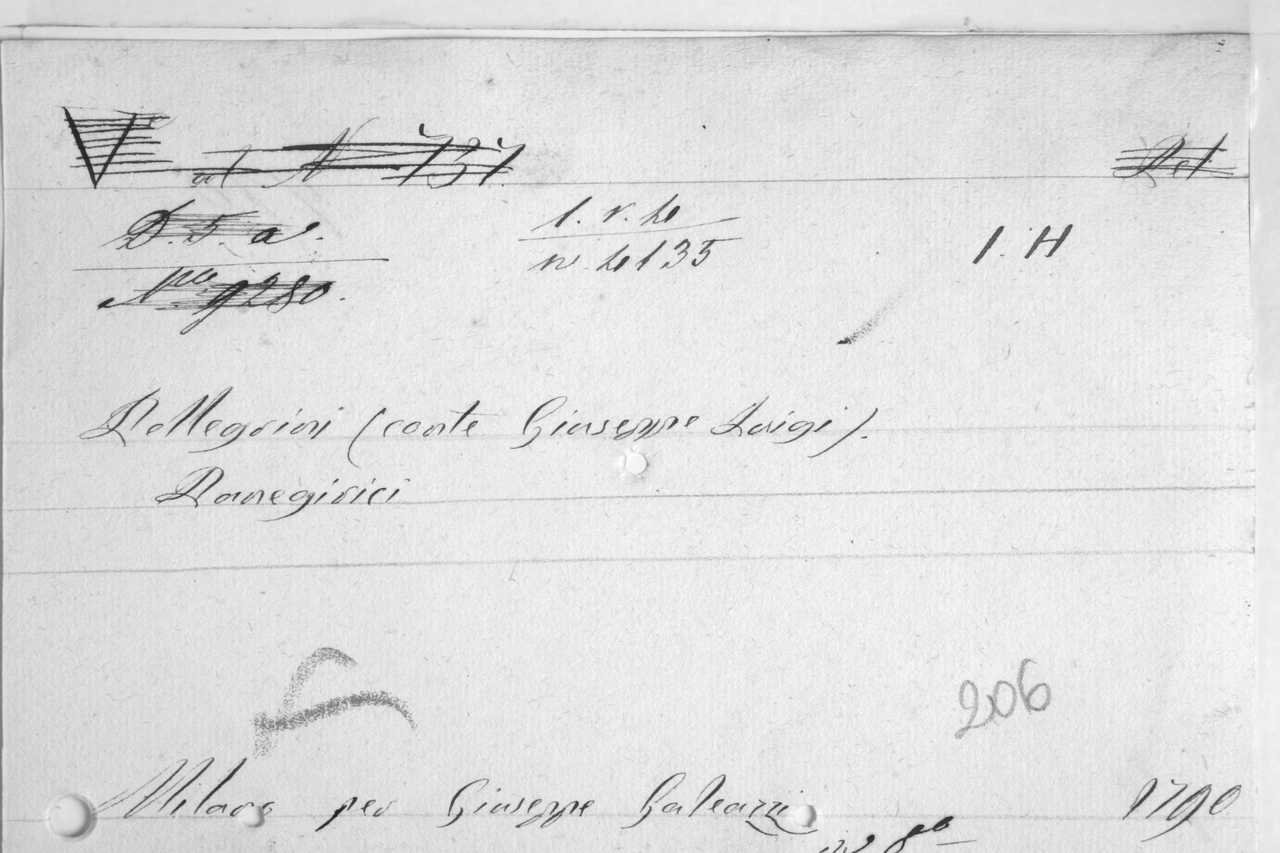 V at N 737. Pel
D. 5. a. 1. v. h 1. H
Nro 9280. n. h 135
Pellegrini (conte Giuseppe Luigi).
Panegirici
206
Milano per Giuseppe Galeazzi 1790
in 8vo